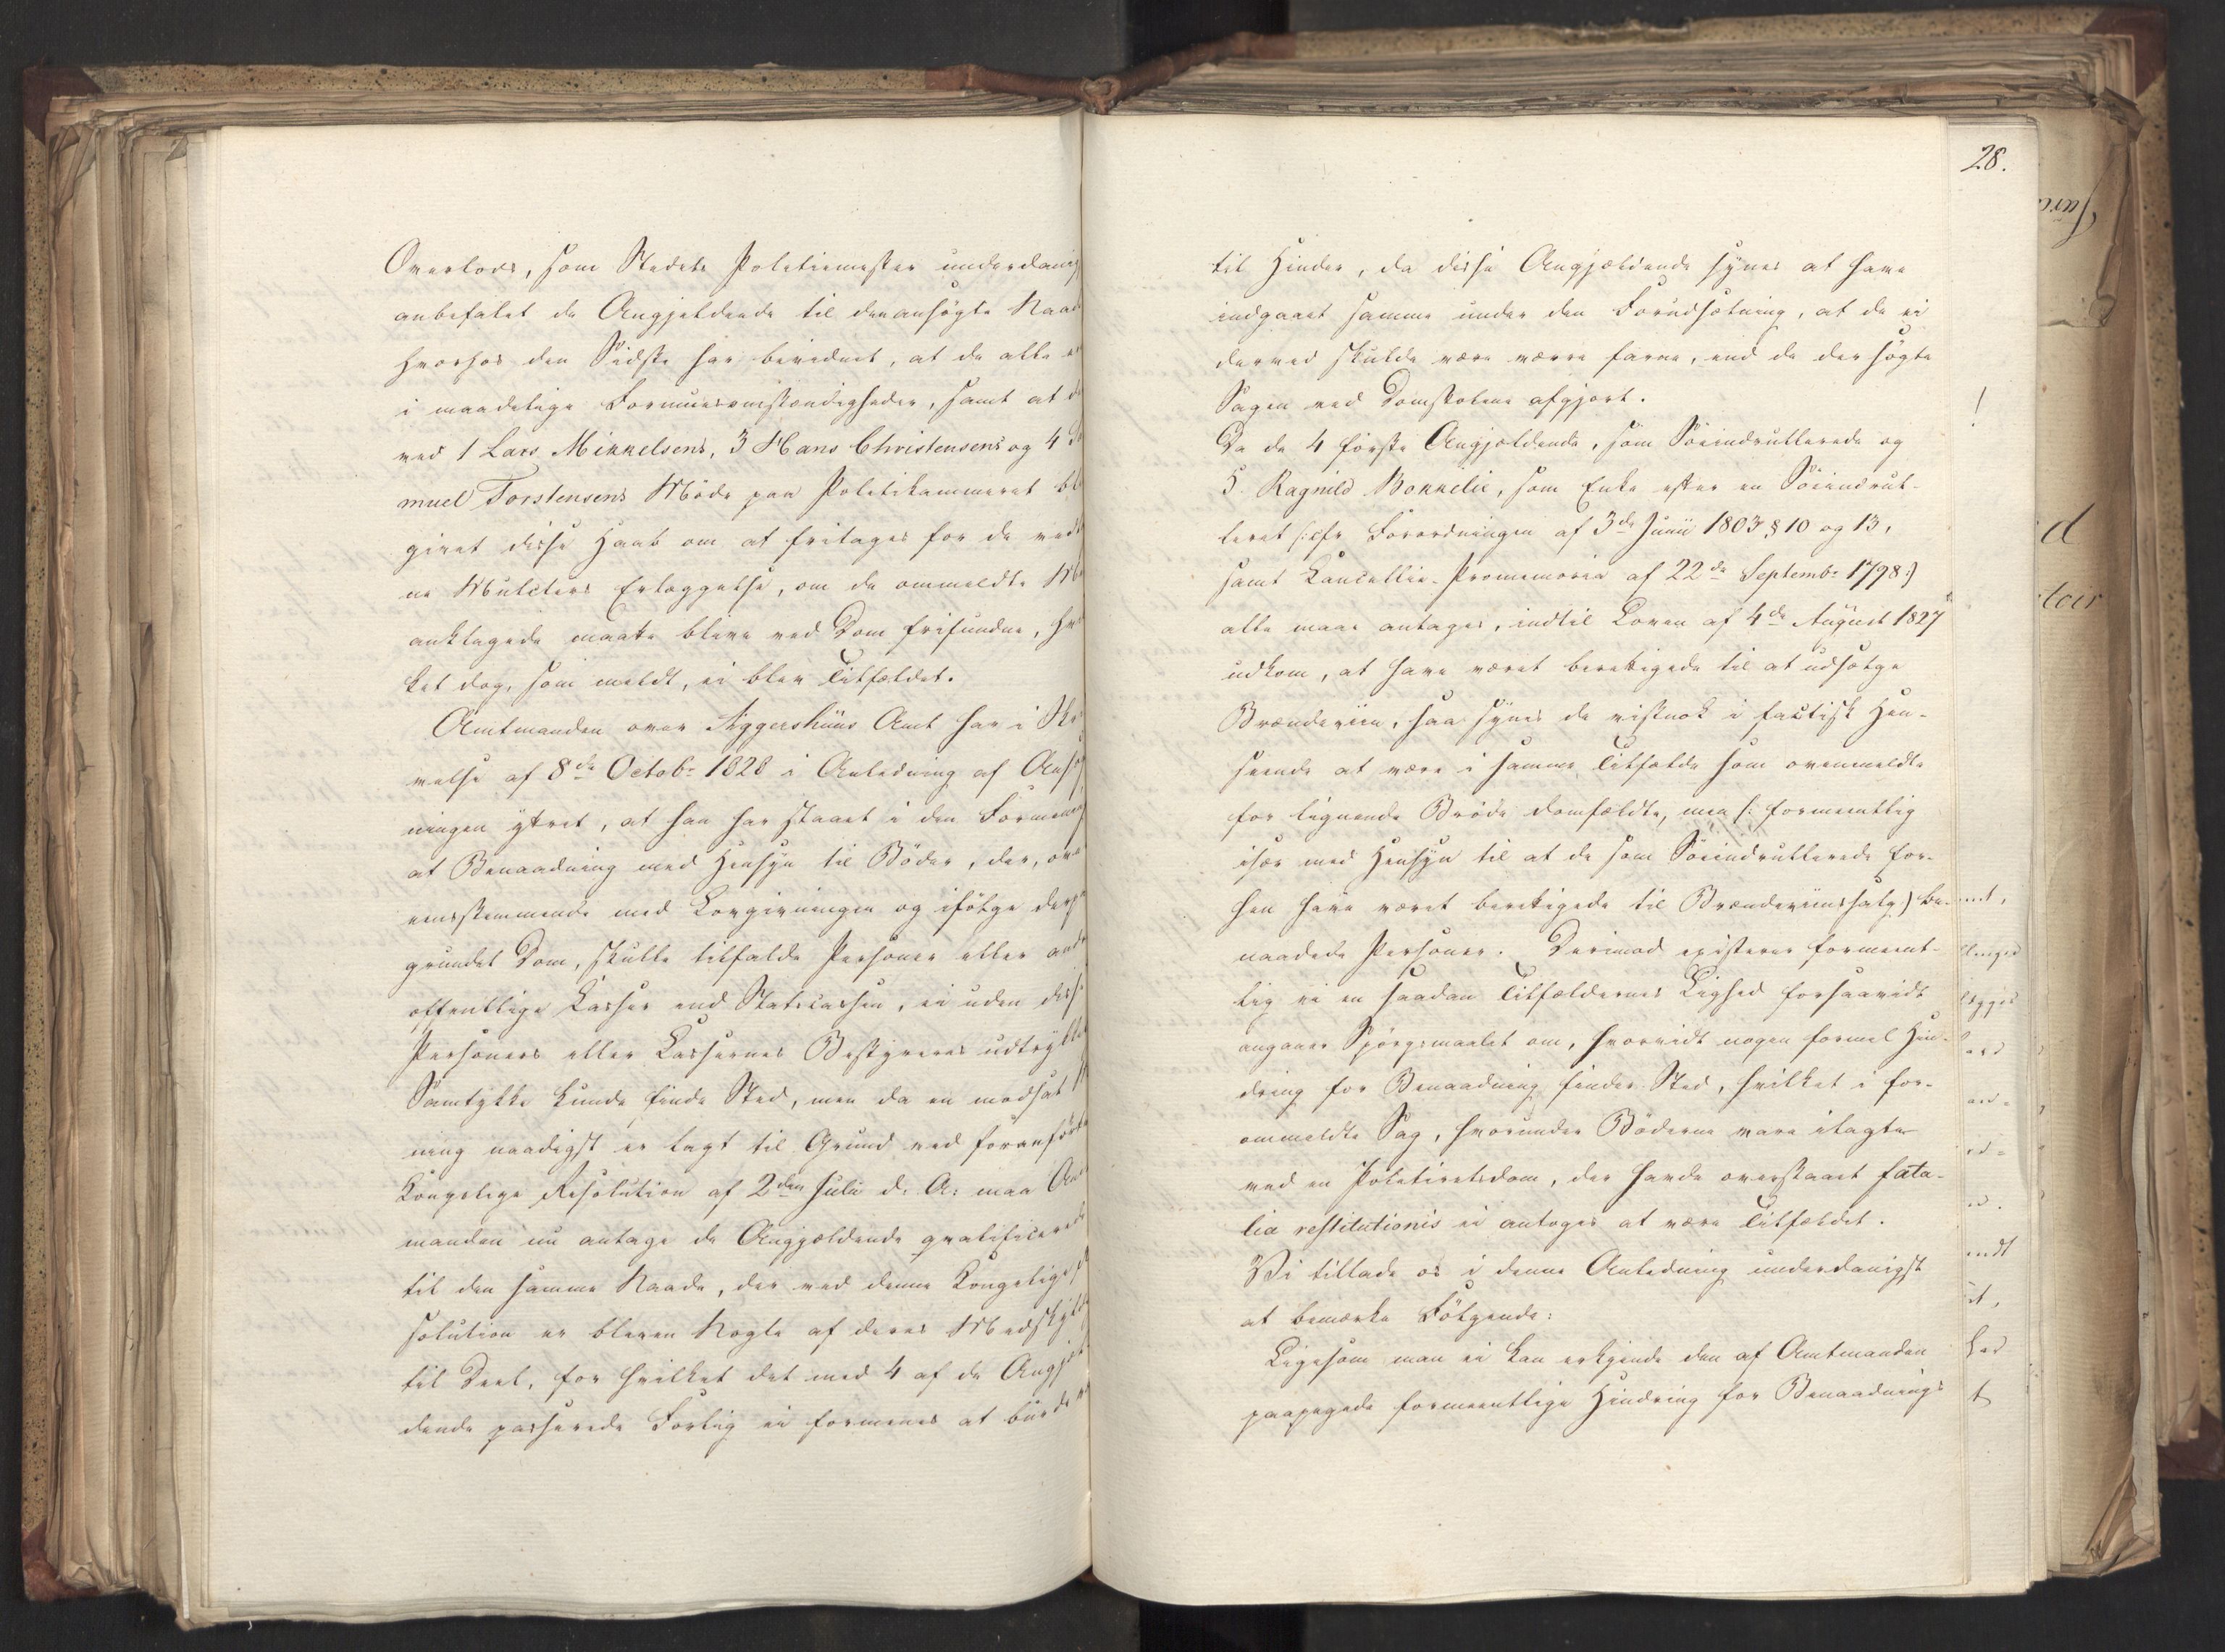 Overlods, som Stedets Politiemester underdanig
anbefalet de Angjeldende til den ansögte Naade
hvorhos den Sidste har bevidnet, at de alle ere
i maadelige Formuesomstændigheder, samt at de
ved 1 Lars Mikkelsens, 3 Hans Christensens og 4 Sa
muel Torstensens Möde paa Politikammeret blev
givet disse Haab om at fritages for de vedt
ne Mulcters Erlæggelse, om de ommeldte
anklagede maatte blive ved Dom frifundne, hvil
ket dog, som meldt, ei blev Tilfældet.
Amtmanden over Aggershuus Amt har i Skri
velse af 8de Octobr 1828 i Anledning af Ansög
ningen yttret, at han har staaet i den Formening
at Benaadning med Hensyn til Böder, der, ove
eensstemmende med Lovgivningen og ifölge derpaa
grundet Dom, skulle tilfalde Personer eller andre
offentlige Casser end Statscassen, ei uden disse
Personers eller Cassernes Bestyreres udtrykkel
Samtykke kunde finde Sted, men da en modsat
ning naadigst er lagt til Grund ved foranförte
Kongelige Resolution af 2den Juli d: A: maa Amt
manden nu antage de Angjældende qvalificerede
til den samme Naade, der ved denne Kongelige Re
solution er bleven Nogle af deres Medskyldige
til Deel, for hvilket det med 4 af de Angjæl
dende passerede Forlig ei formenes at burde være
28.
til Hinder, da disse Angjældende synes at have
indgaaet samme under den Forudsætning, at de ei
derved skulde være værre farne, end de der søgte
Sagen ved Domstolene afgjort.
!
Da de 4 förste Angjældende, som Söeindrullerede og
5. Ragnild Bokkelie, som Enke efter en Söeindrul-
leret (: cfr Forordningen af 3de Junii 1803 § 10 og 13,
samt Cancellie-Promemoria af 22de Septembr 1798:)
alle maae antages, indtil Loven af 4de August 1827
udkom, at have været berettigede til at udsælge
Brændeviin, saa synes de vistnok i factisk Hen-
seende at være i samme Tilfælde som ovenmeldte
for lignende Bröde domfældte, men (: formeentlig
især med Hensyn til at de som Söeindrullerede for-
hen have været berettigede til Brændeviinssalg) be-
naadede Personer. Derimod existerer formeent-
lig ei en saadan Tilfældernes Lighed forsaavidt
angaaer Spörgsmaalet om, hvorvidt nogen formel Hin-
dring for Benaadning finder Sted, hvilket i for-
ommeldte Sag, hvorunder Böderne vare ilagte
ved en Politiretsdom, der havde overstaaet fata-
lia restitutionis ei antoges at være Tilfældet.
Vi tillade os i denne Anledning underdanigst
at bemærke Fölgende:
Ligesom man ei kan erkjende den af Amtmanden
paapegede formeentlige Hindring for Benaadnings